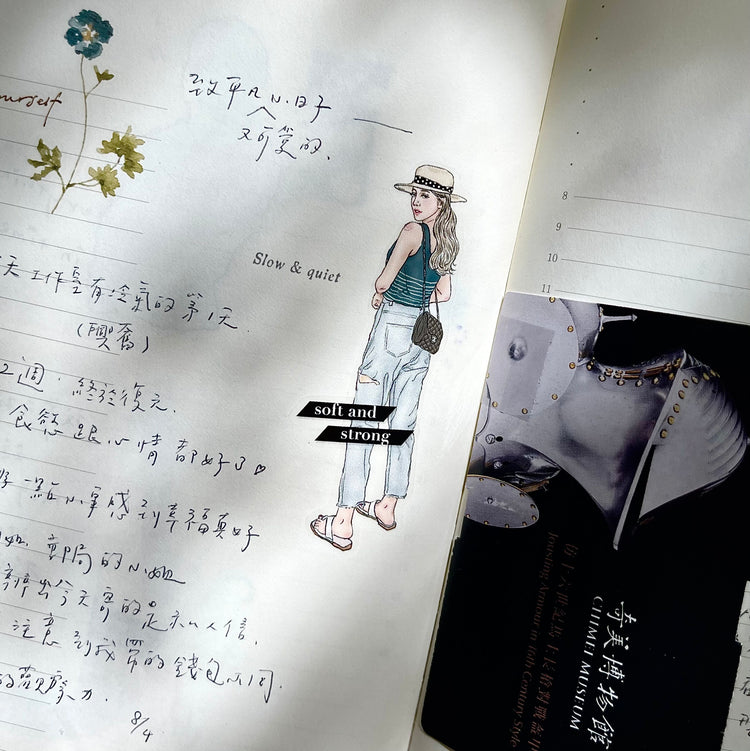 yourself
致平凡小日子
又可愛的、
Slow & quiet
天工作室有冷氣的第1天
(興奮)
2週,終於復元.
食慾跟心情都好了♡
好一點小事感到幸福真好
郵局的小姐
今天寄的是私人信,
注意到我帶的錢包不同.
的觀察力.
8/4
soft and
strong
8
9
10
11
奇美博物館
CHIMEI MUSEUM
Jousting Armour in 16th Century Style